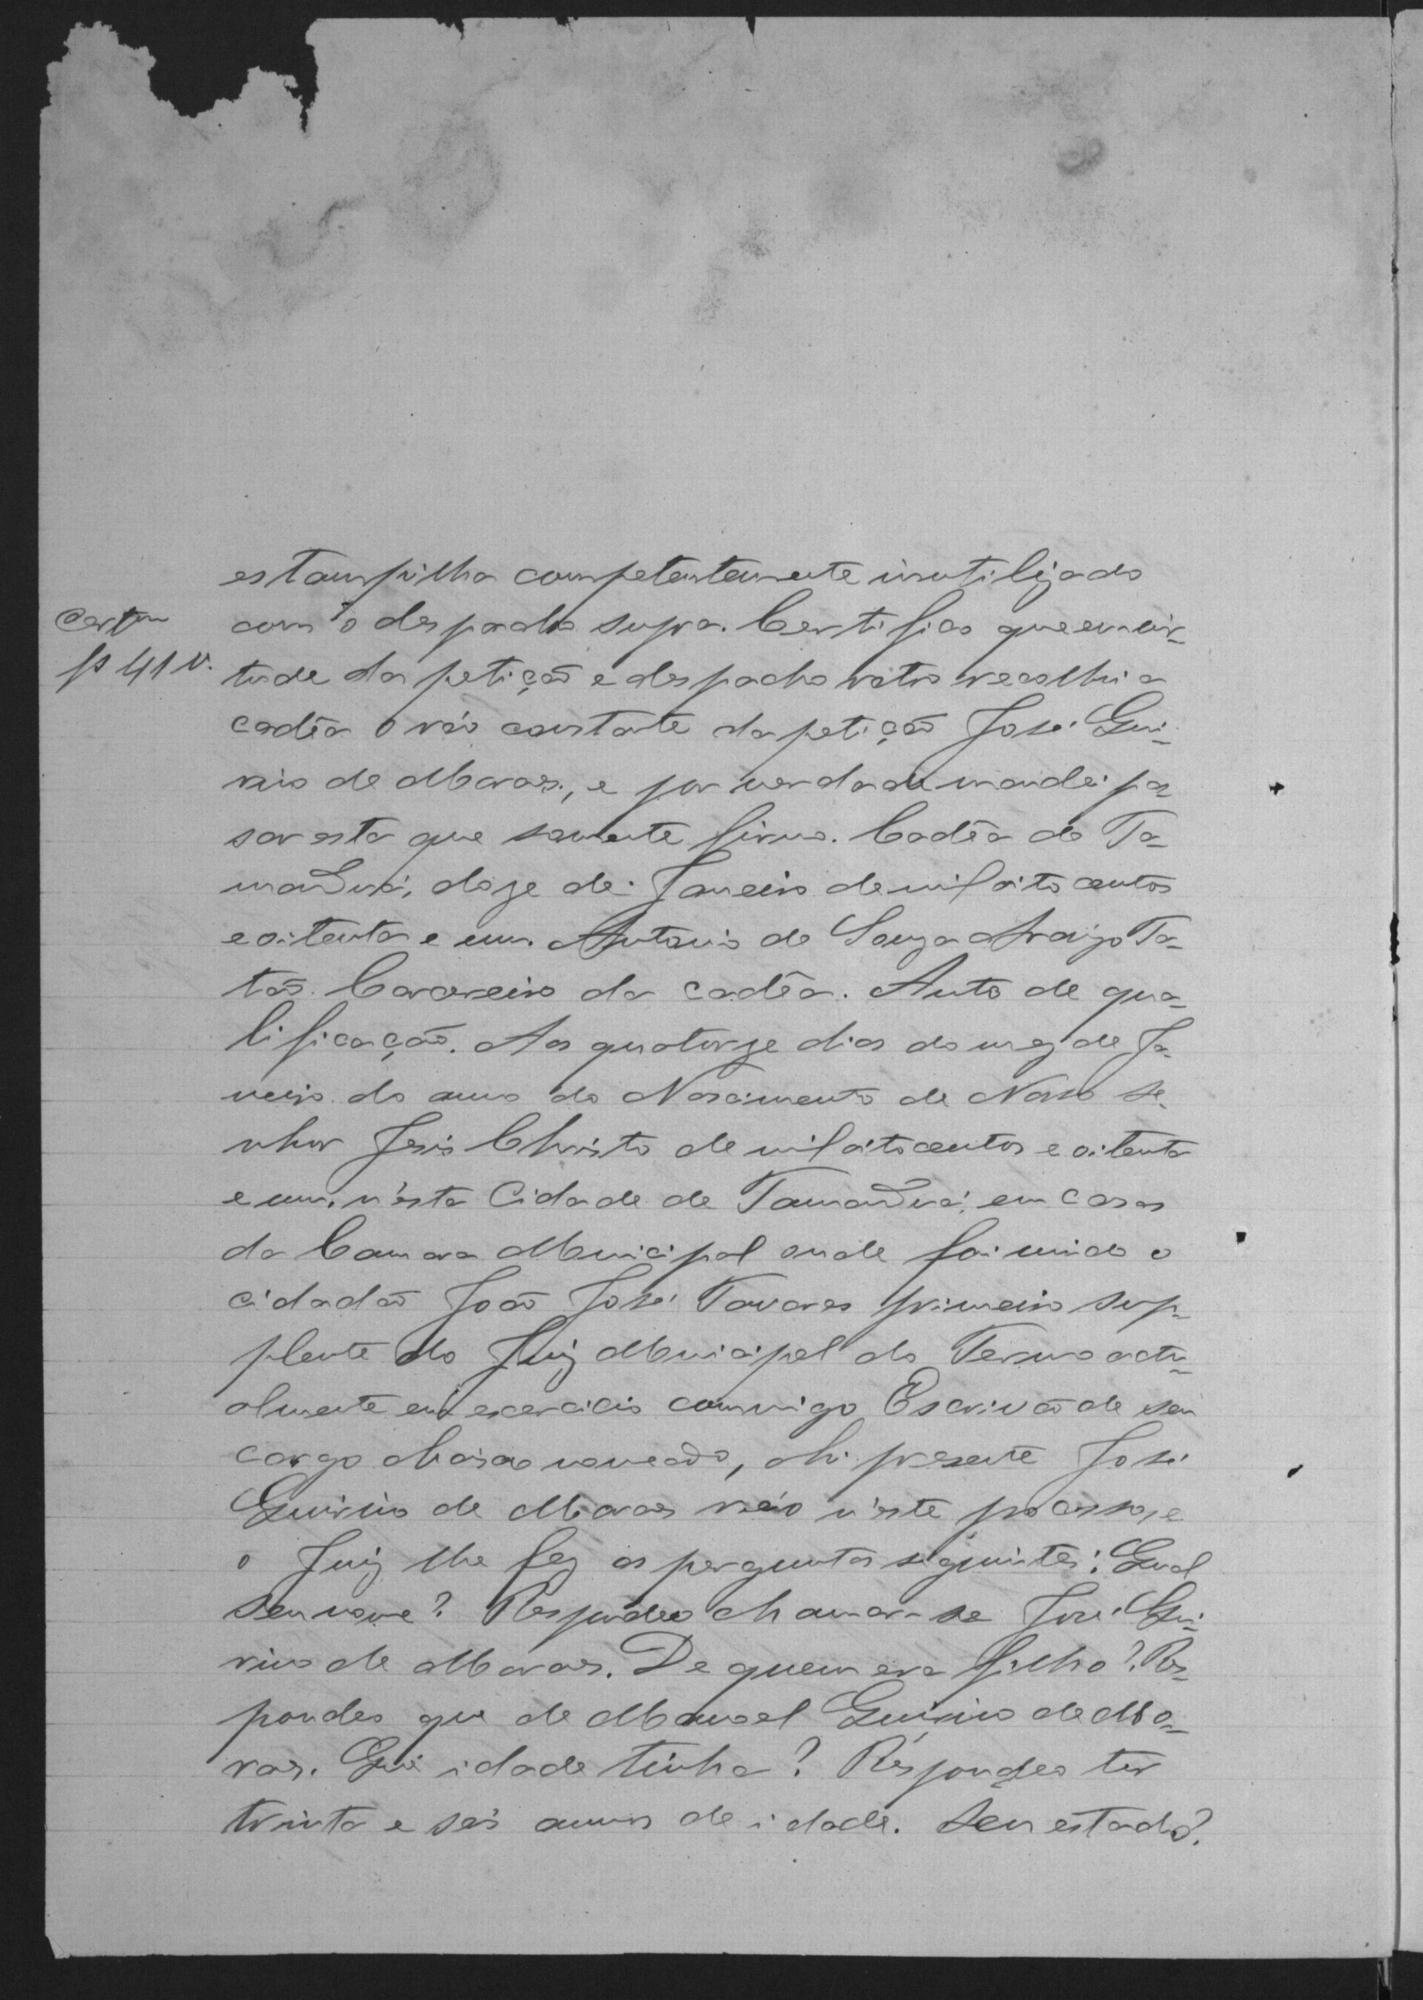 Certam
fs 41 v.
estampilha competentemente inutilizado
com o despacho supra. Certifico que em vir-
tude da petição e despacho retro recolhi a
cadêa o réo constante da petição José Qui-
rino de Moraes, e por verdade mandei pas-
sar esta que somente firmo. Cadêa do Ta-
manduá, doze de Janeiro de mil oito centos
e oitenta e um. Antonio de Souza Araujo Ta-
tão. Carcereiro da cadêa. Auto de qua-
lificação. Aos quatorze dias do mez de Ja-
neiro do anno do Nascimento de Nosso Se-
nhor Jesus Christo de mil oitocentos e oitenta
e um, n'esta Cidade de Tamanduá, em casas
da Camara Municipal onde foi vindo o
cidadão João José Tavares primeiro sup-
plente do Juiz Municipal do Termo actu-
almente em exercicio commigo Escrivão de seu
cargo abaixo nomeado, ahi presente José
Quirino de Moraes réo n'este processo, e
o Juiz lhe fez as perguntas seguintes: Qual
seu nome? Respondeo chamar-se José Qui-
rino de Moraes. De quem era filho? Res-
pondeo que de Manoel Quirino de Mo-
raes. Que idade tinha? Respondeo ter
trinta e seis annos de idade. Seu estado?